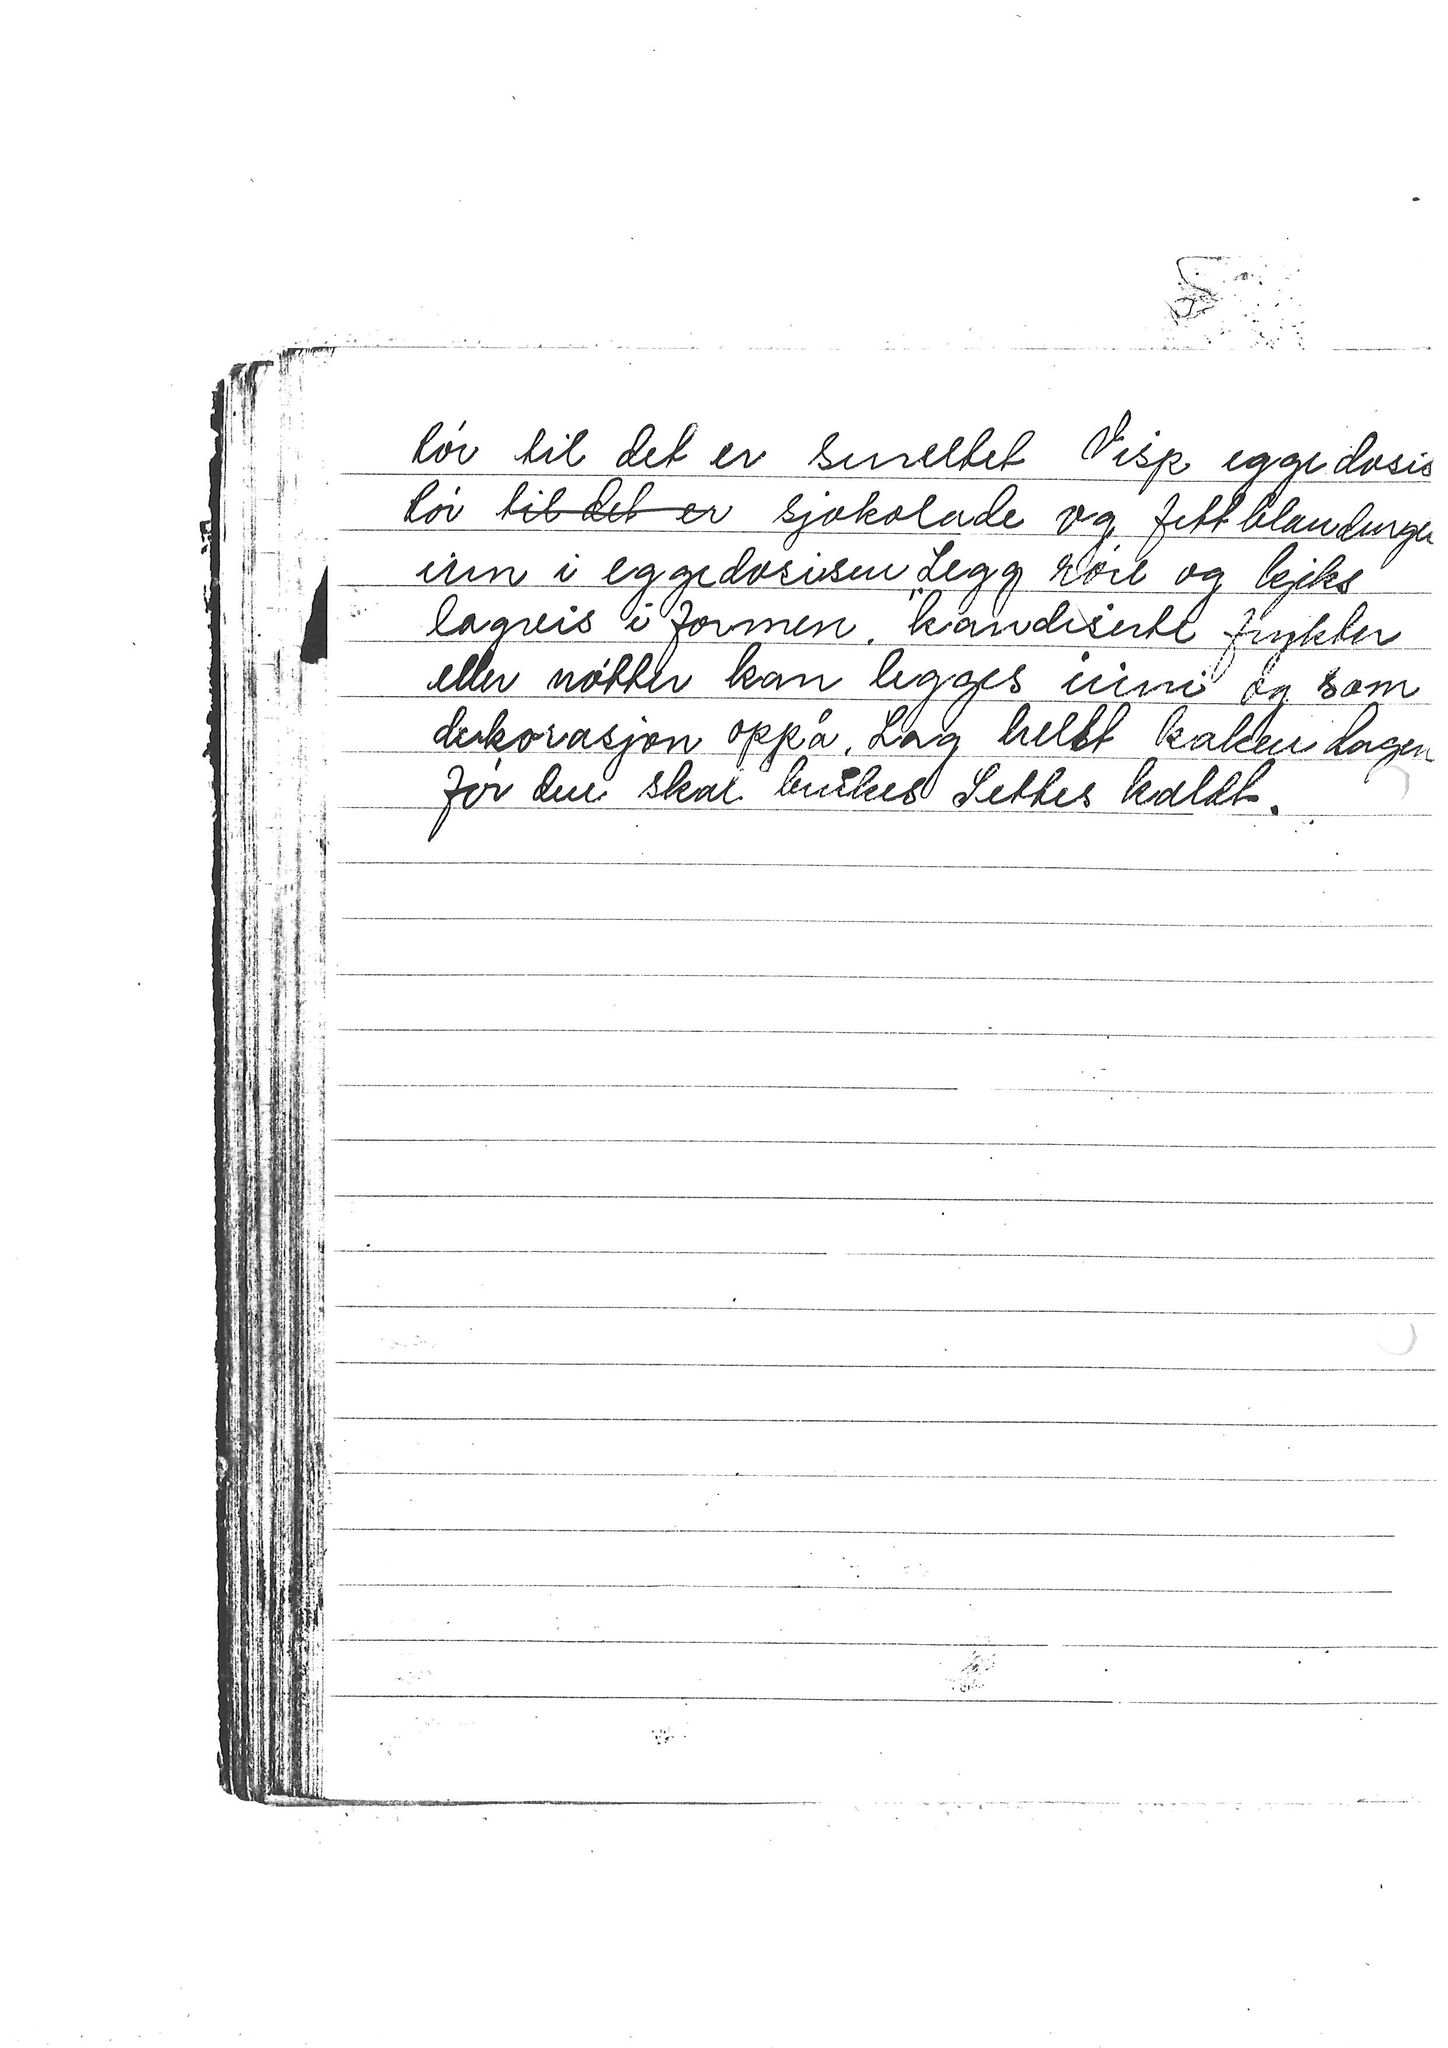 Rør til det er smeltet Visp eggedosis
Rør til det er sjokolade og fettblandinge
inn i eggedosisen, Legg røre og kjeks
lagvis i formen. kandiserte frukter
eller nøtter kan legges inni og som
dekorasjon oppå. Lag helst kaken dagen
før den skal brukes Settes kaldt.